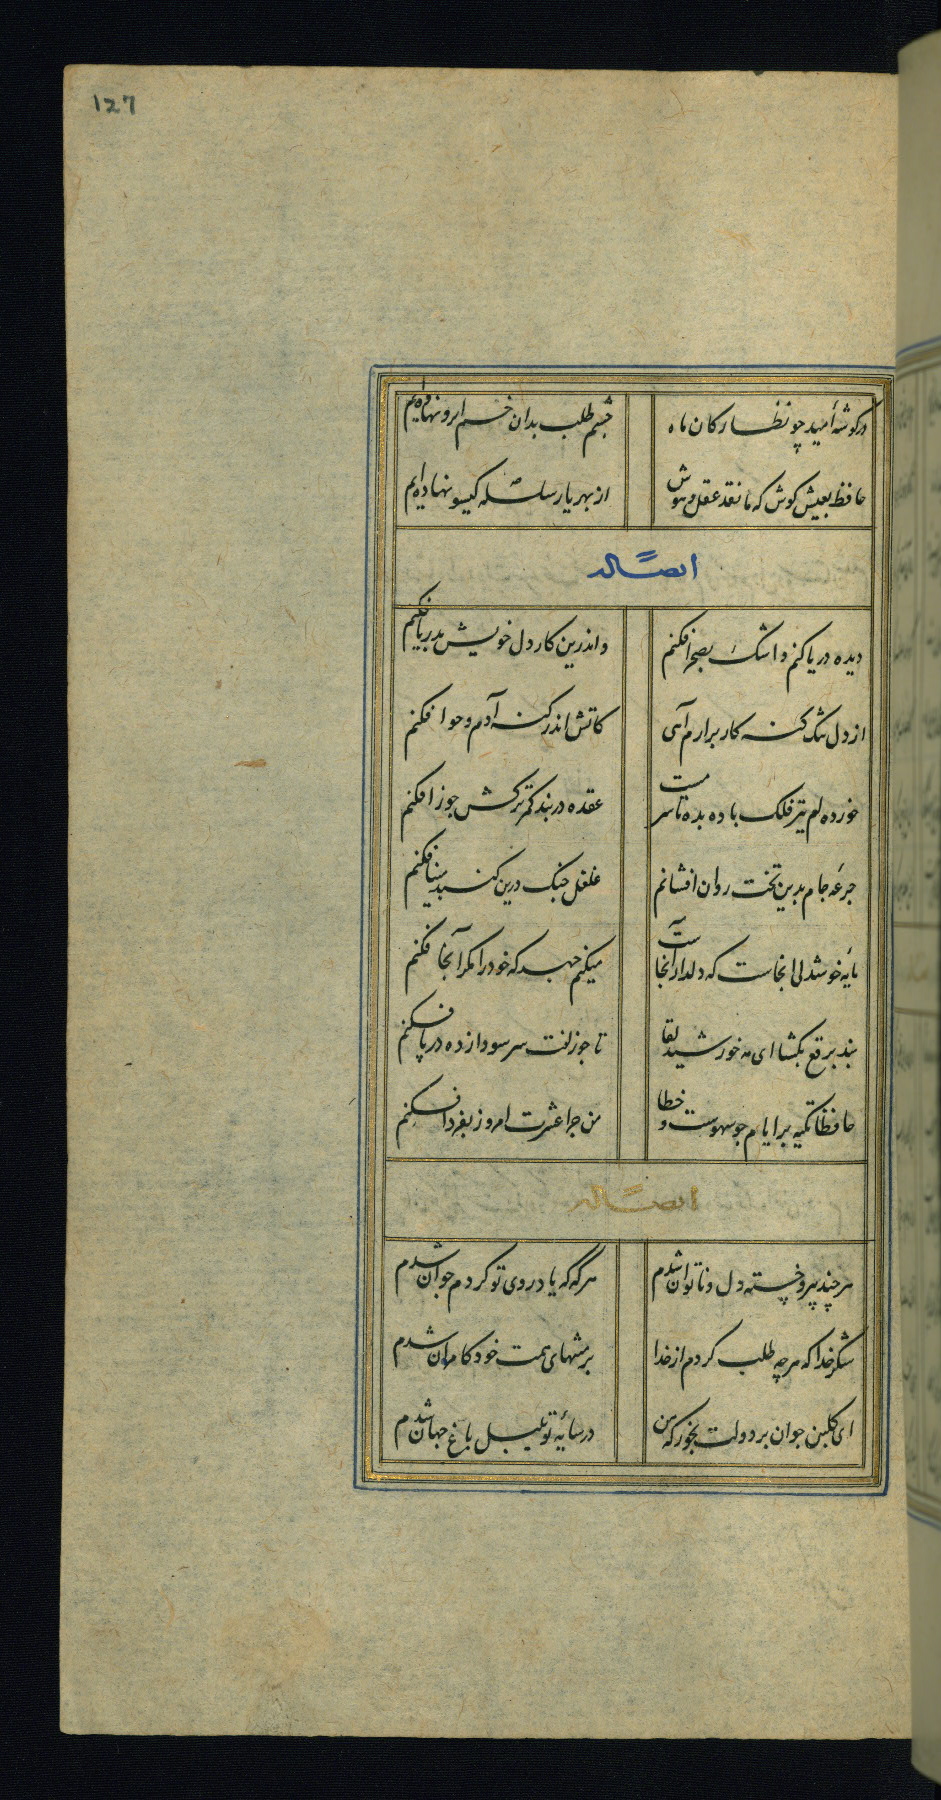 127
در گوشه امید چو نظارگان ماه
چشم طلب بدان خم ابرو نهاده‌ایم
حافظ بعیش کوش که ما نقد عقل و هوش
از بهر یار سلسله گیسو نهاده‌ایم
ایضاً له
دیده دریا کنم و اشک بصحرا فکنم
و اندرین کار دل خویش بدریا فکنم
از دل تنگ گنه کار برارم آهی
کاتش اندر گنه آدم و حوا فکنم
خورده‌ام تیر فلک باده بده تا سر مست
عقده در بند کمر ترکش جوزا فکنم
جرعه جام بدین تخت روان افشانم
غلغل چنگ درین گنبد مینا فکنم
مایه خوشدلی انجاست که دلدار آنجاست
میکنم جهد که خود را مگر آنجا فکنم
بند برقع بگشا ای مه خورشید لقا
تا چو زلفت سر سودا زده در پا فکنم
حافظا تکیه بر ایام چو سهوست و خطا
من چرا عشرت امروز بفردا فکنم
ایضاً له
هر چند پیر و خسته دل و ناتوان شدم
هر گه که یاد روی تو کردم جوان شدم
شکر خدا که هر چه طلب کردم از خدا
بر منتهای همت خود کامران شدم
ای گلبن جوان بر دولت بخور که من
در سایه تو بلبل باغ جهان شدم